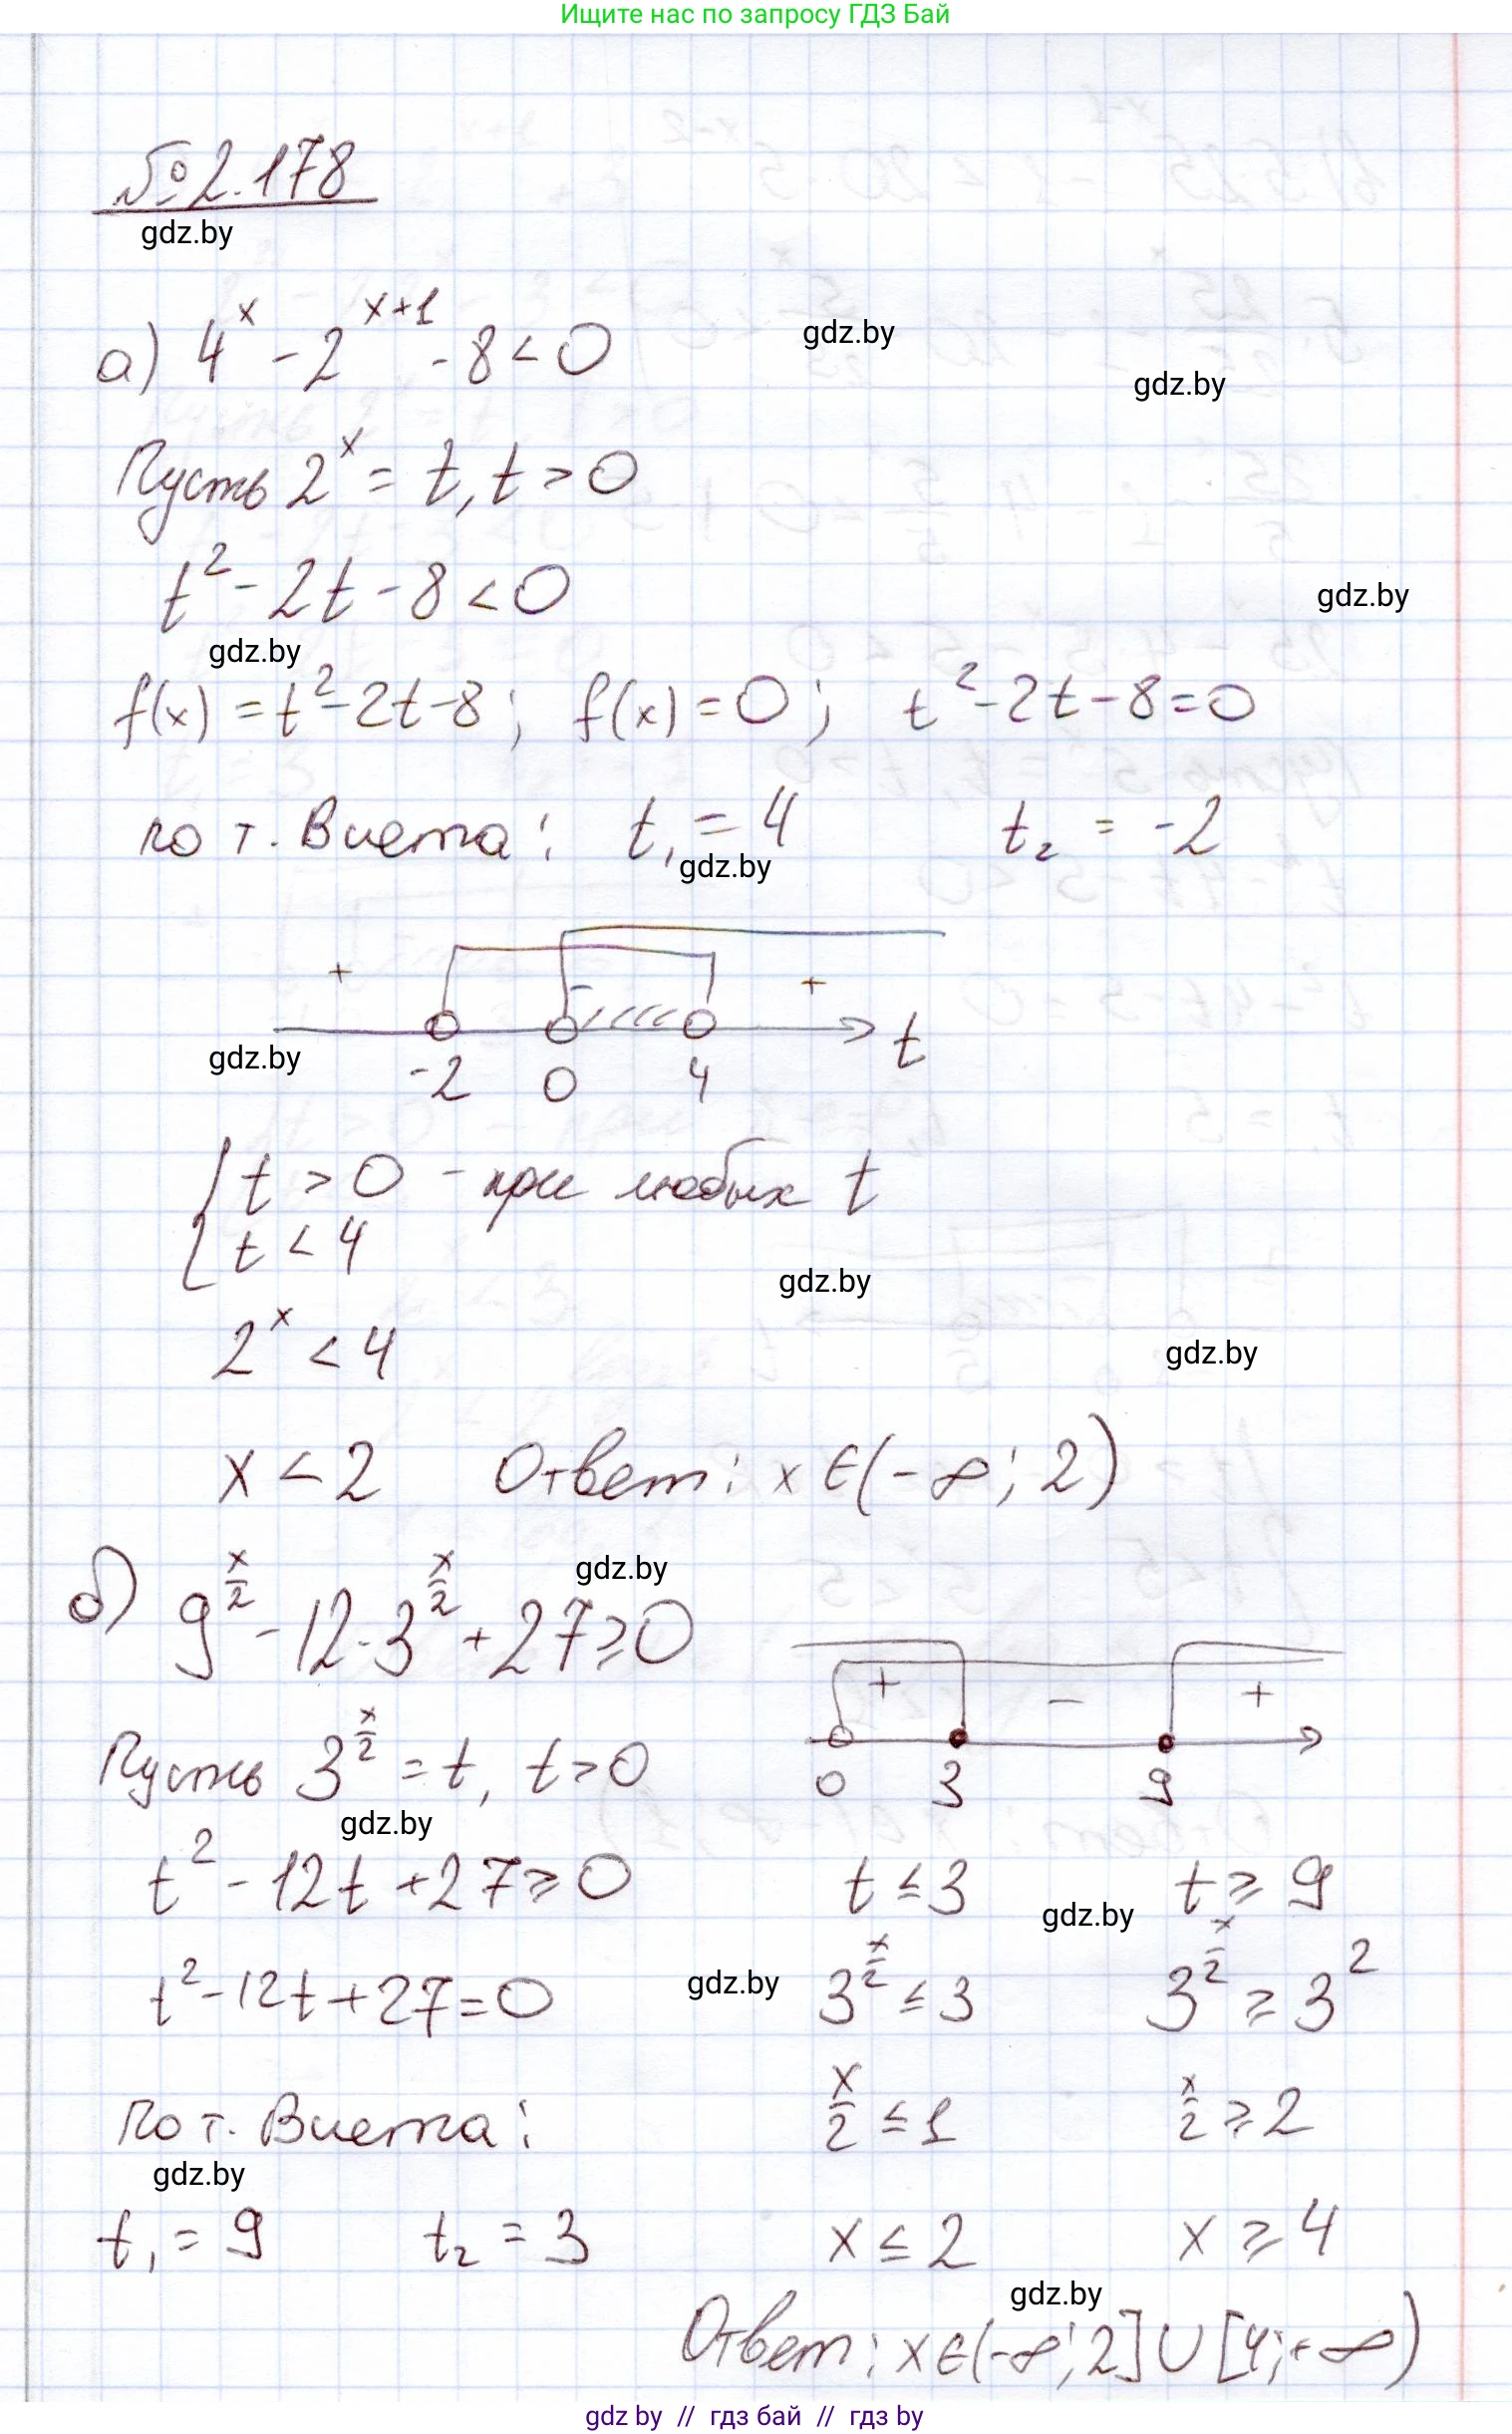 Ищите нас по запросу ГДЗ Бай
№2.178
gdz.by
а) 4^x - 2^(x+1) - 8 < 0
gdz.by
gdz.by
Пусть 2^x = t, t > 0
t² - 2t - 8 < 0
gdz.by
gdz.by
f(x) = t² - 2t - 8; f(x) = 0; t² - 2t - 8 = 0
по т. Виета: t₁ = 4 t₂ = -2
gdz.by
+ - +
t
gdz.by
-2 0 4
{ t > 0 - при любых t
t < 4
gdz.by
2^x < 4
gdz.by
x < 2 Ответ: x ∈ (-∞; 2)
gdz.by
б) 9^(x/2) - 12·3^(x/2) + 27 ≥ 0
+ - +
0 3 9
Пусть 3^(x/2) = t, t > 0
gdz.by
t² - 12t + 27 ≥ 0
t ≤ 3 t ≥ 9
gdz.by
t² - 12t + 27 = 0
gdz.by
3^(x/2) ≤ 3 3^(x/2) ≥ 3²
По т. Виета:
x/2 ≤ 1 x/2 ≥ 2
gdz.by
t₁ = 9 t₂ = 3
x ≤ 2 x ≥ 4
gdz.by
Ответ: x ∈ (-∞; 2] ∪ [4; +∞)
gdz by // гдз бай // гдз by